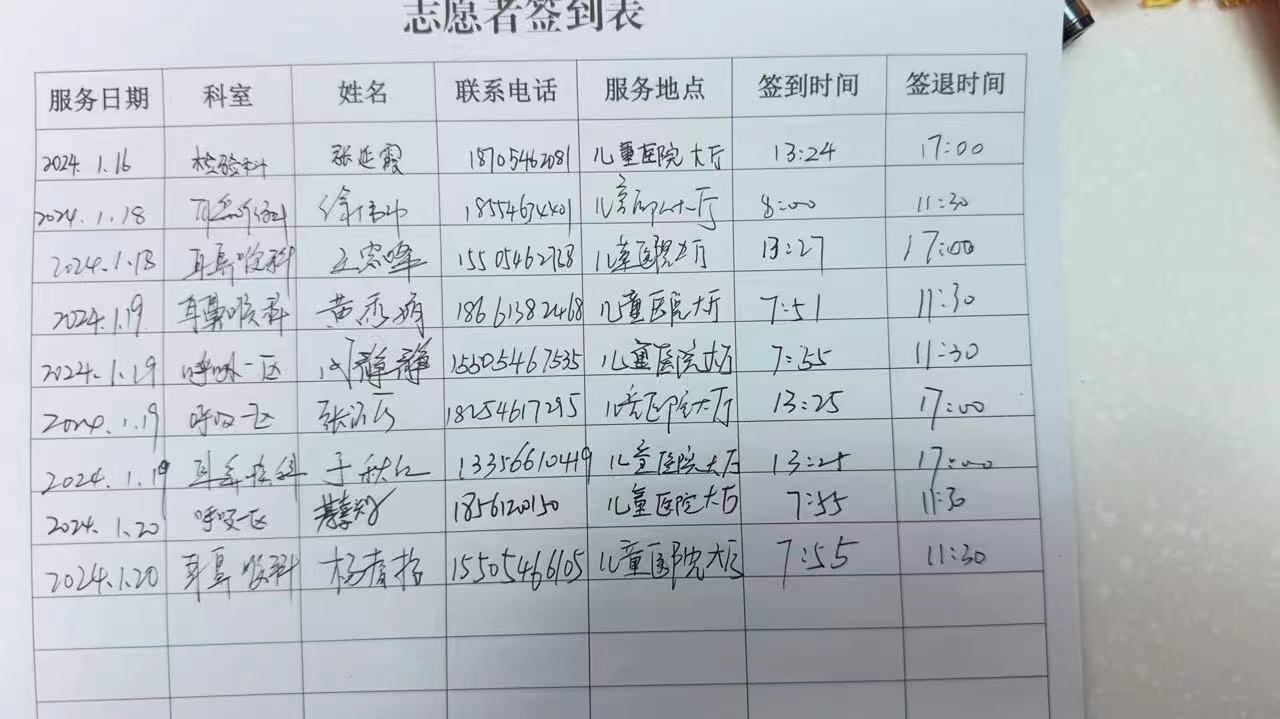 志愿者签到表
服务日期 科室 姓名 联系电话 服务地点 签到时间 签退时间
2024.1.16 检验科 张延霞 18705462081 儿童医院大厅 13:24 17:00
2024.1.18 耳鼻喉科 18554674401 儿童医院大厅 8:00 11:30
2024.1.18 耳鼻喉科 王宗峰 15505462728 儿童医院大厅 13:27 17:00
2024.1.19 耳鼻喉科 黄秀娟 18661382468 儿童医院大厅 7:51 11:30
2024.1.19 呼吸一区 静静 15505467535 儿童医院大厅 7:55 11:30
2024.1.19 呼吸一区 张 18254617295 儿童医院大厅 13:25 17:00
2024.1.19 耳鼻喉科 于秋红 13356610419 儿童医院大厅 13:25 17:00
2024.1.20 呼吸一区 1856120150 儿童医院大厅 7:55 11:30
2024.1.20 耳鼻喉科 杨 15505466105 儿童医院大厅 7:55 11:30